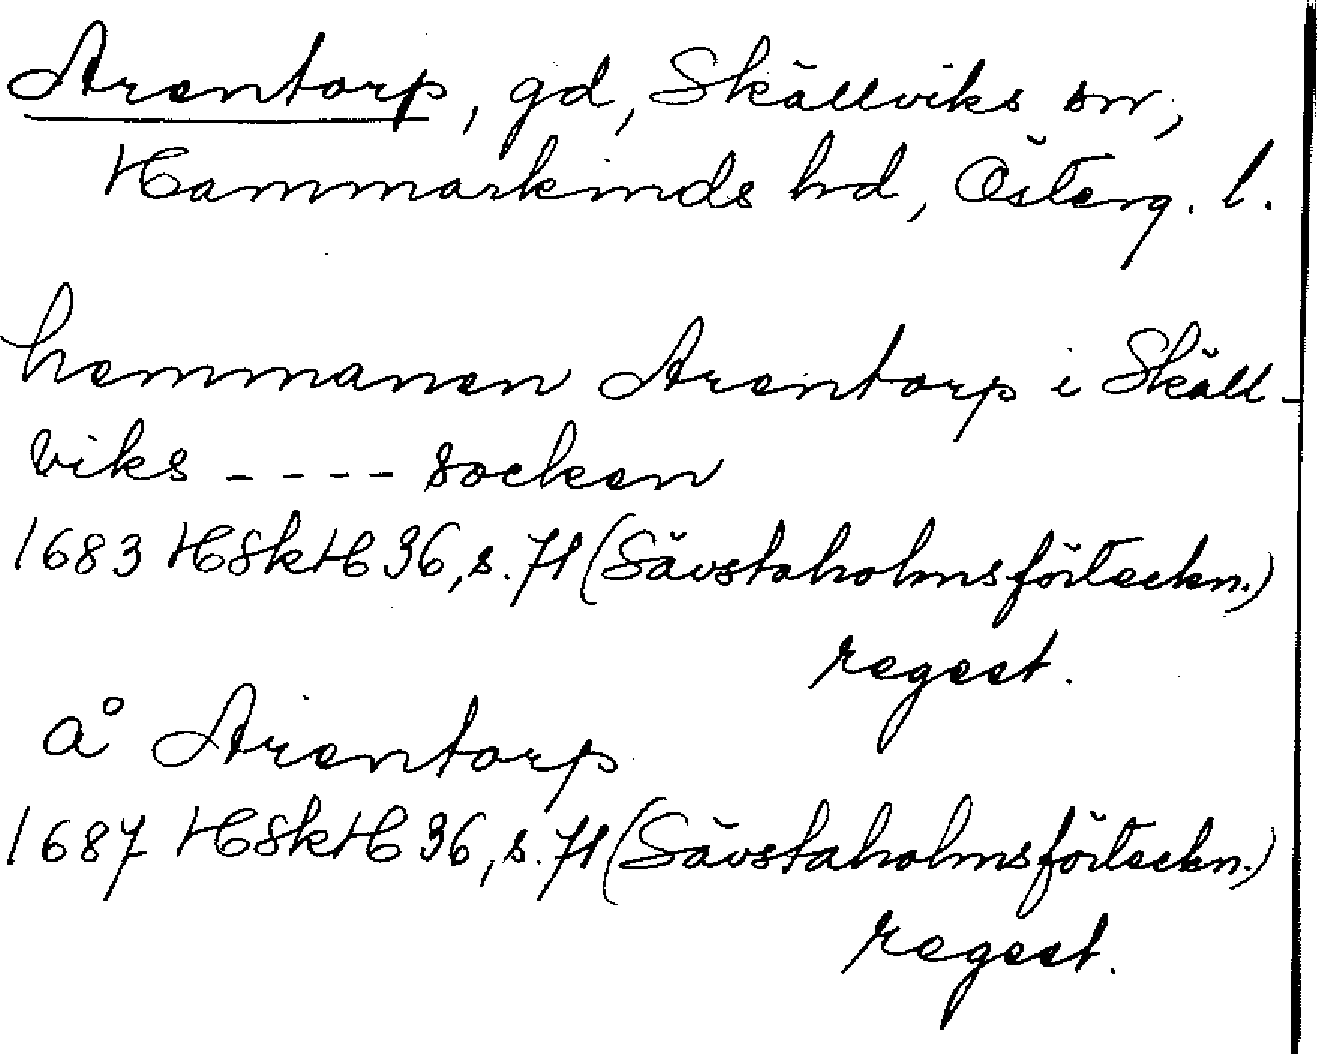 Arentorp, gd, Skällviks sn,
Hammarkinds hd, Österg. l.
hemmanen Arentorp i Skäll-
viks ---- socken
1683 HSkH 36, s. 71 (Sävstaholmsförteckn.)
regest.
å Arentorp
1687 HSkH 36, s. 71 (Sävstaholmsförteckn.)
regest.